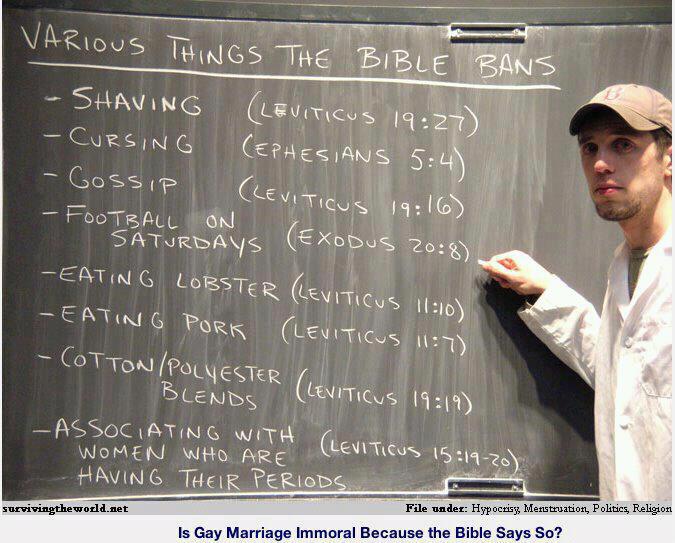 VARIOUS THINGS THE BIBLE BANS
- SHAVING (LEVITICUS 19:27)
- CURSING (EPHESIANS 5:4)
- GOSSIP (LEVITICUS 19:16)
- FOOTBALL ON
SATURDAYS (EXODUS 20:8)
- EATING LOBSTER (LEVITICUS 11:10)
- EATING PORK (LEVITICUS 11:7)
- COTTON/POLYESTER
BLENDS (LEVITICUS 19:19)
- ASSOCIATING WITH
WOMEN WHO ARE (LEVITICUS 15:19-20)
HAVING THEIR PERIODS
B
survivingtheworld.net File under: Hypocrisy, Menstruation, Politics, Religion
Is Gay Marriage Immoral Because the Bible Says So?